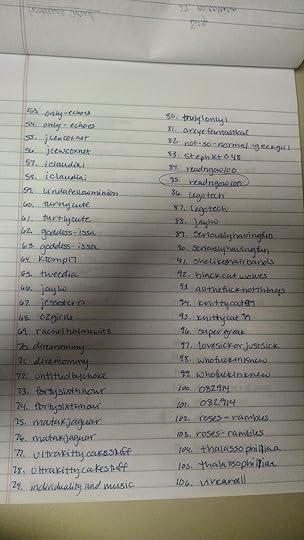 53. only-echoes
54. only-echoes
55. jcewcoxnet
56. jcewcoxnet
57. iclaudiai
58. iclaudiai
59. undafellowminion
60. turtlycute
61. turtlycute
62. goddess-issa
63. goddess-issa
64. ktompi7
65. tweedia
66. jaylw
67. jessotern
68. ozgirlie
69. rachelhalmawitz
70. diremommy
71. diremommy
72. untitledbychoice
73. fortysixthhour
74. fortysixthhour
75. matakjaguar
76. matakjaguar
77. ultrakittycakestuff
78. ultrakittycakestuff
79. individuality and music
80. trulyl0nly1
81. areyefantastical
82. not-so-normal-geekgirl
83. Stephkt048
84. readngowloo
85. readngowloon
86. legotech
87. legotech
88. jaylw
89. Seriouslyhavingfun
90. Seriouslyhavingfun
91. shelikeshairbands
92. blackcatwolves
93. allthefucknothings
94. knittycat99
95. knittycat99
96. supergreak
97. lovesickorjustsick
98. whofuckinknew
99. whofuckinknew
100. 082914
101. 082914
102. roses-rambles
103. roses-rambles
104. thalassophiliaa
105. thalassophiliaa
106. vivcarol1